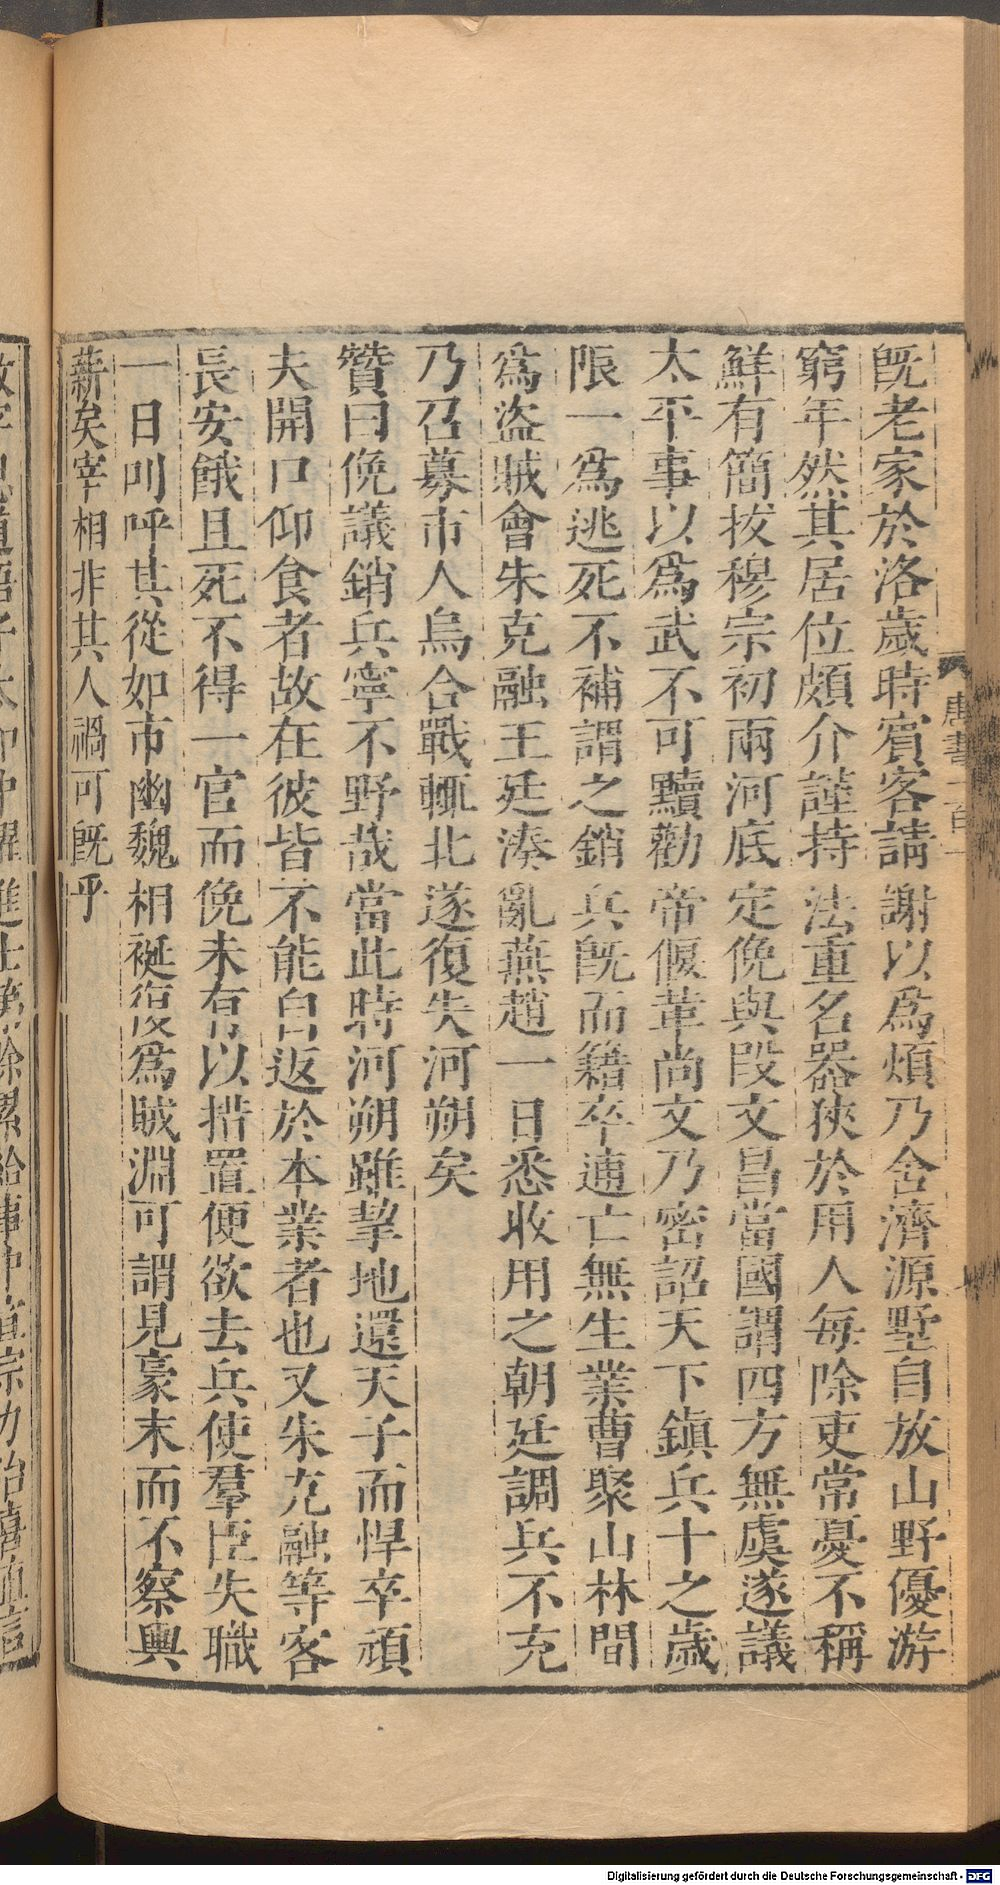 既老家於洛歲時賓客請謝以爲煩乃舍濟源墅自放山野優游
窮年然其居位頗介謹持法重名器狹於用人每除吏常憂不稱
鮮有簡拔穆宗初兩河底定俛與段文昌當國謂四方無虞遂議
太平事以爲武不可黷勸帝偃革尚文乃密詔天下鎭兵十之歲
限一爲逃死不補謂之銷兵旣而籍卒逋亡無生業曹聚山林間
爲盗賊會朱克融王廷湊亂燕趙一日悉收用之朝廷調兵不充
乃召募市人烏合戰輒北遂復失河朔矣
贊曰俛議銷兵寧不野哉當此時河朔雖挈地還天子而悍卒頑
夫開口仰食者故在彼皆不能自返於本業者也又朱克融等客
長安餓且死不得一官而俛未有以措置便欲去兵使羣臣失職
一日叫呼其從如市幽魏相挻復爲賊淵可謂見豪末而不察輿
薪矣宰相非其人禍可旣乎
唐書一百一
Digitalisierung gefördert durch die Deutsche Forschungsgemeinschaft - DFG